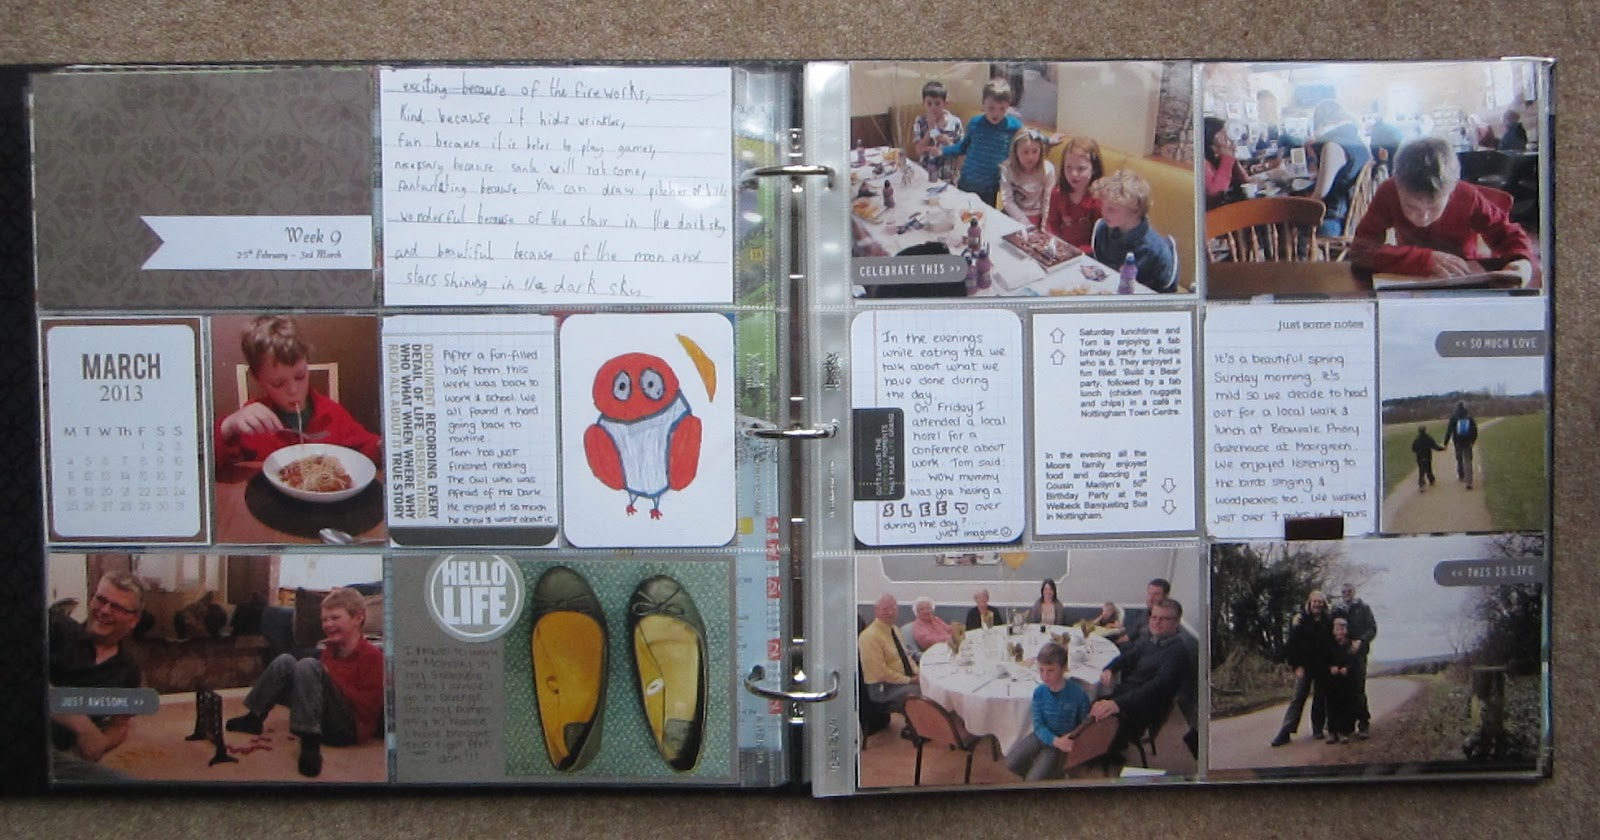 Week 9
25th February - 3rd March
exciting because of the fireworks,
Kind because it hide wrinkles,
fun because it is beter to play games,
necessary because santa will not come,
because You can draw
wonderful because of the stars in the dark sky
and beautiful because of the moon and
stars shining in the dark sky
MARCH
2013
M T W Th F S S
1 2 3
4 5 6 7 8 9 10
11 12 13 14 15 16 17
18 19 20 21 22 23 24
25 26 27 28 29 30 31
DOCUMENT RECORDING EVERY
DETAIL OF LIFE OBSERVATIONS
WHO WHAT WHEN WHERE WHY
READ ALL ABOUT IT TRUE STORY
After a fun-filled
half term this
week was back to
work & school. We
all found it hard
going back to
routine.
Tom has just
finished reading
The Owl who was
Afraid of the Dark.
He enjoyed it so much
he drew & wrote about it
JUST AWESOME >>
HELLO
LIFE
I travel to work
on Monday in
my
when I arrive I
go to change
into my pumps
only to realise
I have brought
two right feet
doh!!!
CELEBRATE THIS >>
In the evenings
while eating tea we
talk about what we
have done during
the day.
On Friday I
attended a local
hotel for a
conference about
work. Tom said:
... wow mummy
was you having a
SLEEP over
during the day? .....
just imagine
GOTTA LOVE THE
MOMENTS
THAT MAKE LIFE GRAND
Saturday lunchtime and
Tom is enjoying a fab
birthday party for Rosie
who is 8. They enjoyed a
fun filled 'Build a Bear'
party, followed by a fab
lunch (chicken nuggets
and chips) in a café in
Nottingham Town Centre.
In the evening all the
Moore family enjoyed
food and dancing at
Cousin Marilyn's 60th
Birthday Party at the
Welbeck Banqueting Suit
in Nottingham.
just some notes
It's a beautiful spring
Sunday morning. It's
mild so we decide to head
out for a local walk &
lunch at Beauvale Priory
Gatehouse at Moorgreen.
We enjoyed listening to
the birds singing &
woodpeckers too. We walked
just over 7 hours
<< SO MUCH LOVE
<< THIS IS LIFE